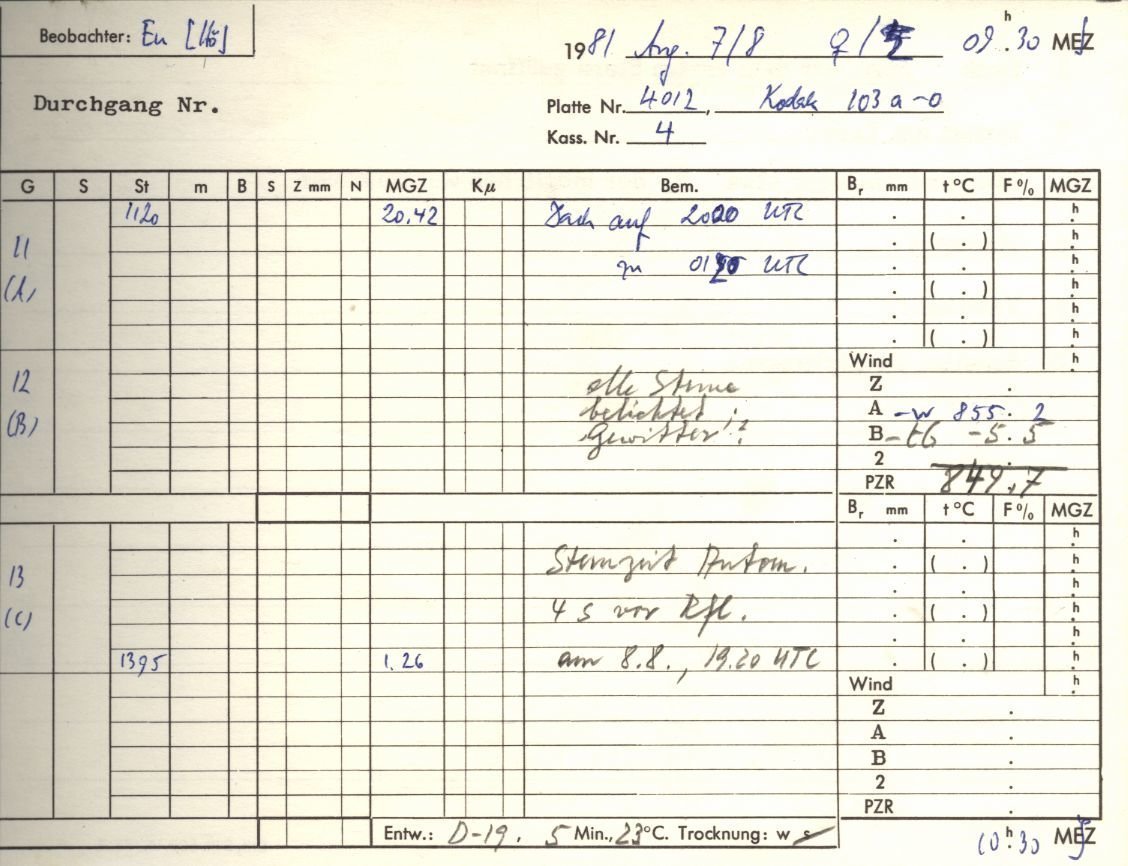 Beobachter: En [Hö]
1981 Aug. 7/8 ♀/♄ 09 h 30 MEZ
Durchgang Nr.
Platte Nr. 4012, Kodak 103 a-o
Kass. Nr. 4
G S St m B S Z mm N MGZ Kμ Bem. Br mm t °C F % MGZ
1120 20.42 Dach auf 2020 UTC . . h
11 . ( . ) h
zu UTC . . h
(A) . ( . ) h
. . h
. ( . ) h
Wind h
12 alle Sterne Z .
belichtet! A -w 855. 2
(B) Gewitter!? B - tG -5. 5
2 .
PZR 849,7
Br mm t °C F % MGZ
. . h
Sternzeit Autom. . ( . ) h
13 . . h
(C) 4 s vor Rfl. . ( . ) h
. . h
1395 1.26 am 8.8., 19.20 UTC . ( . ) h
Wind h
Z .
A .
B .
2 .
PZR .
Entw.: D-19. 5 Min., 23°C. Trocknung: w s
10 h 30 MEZ